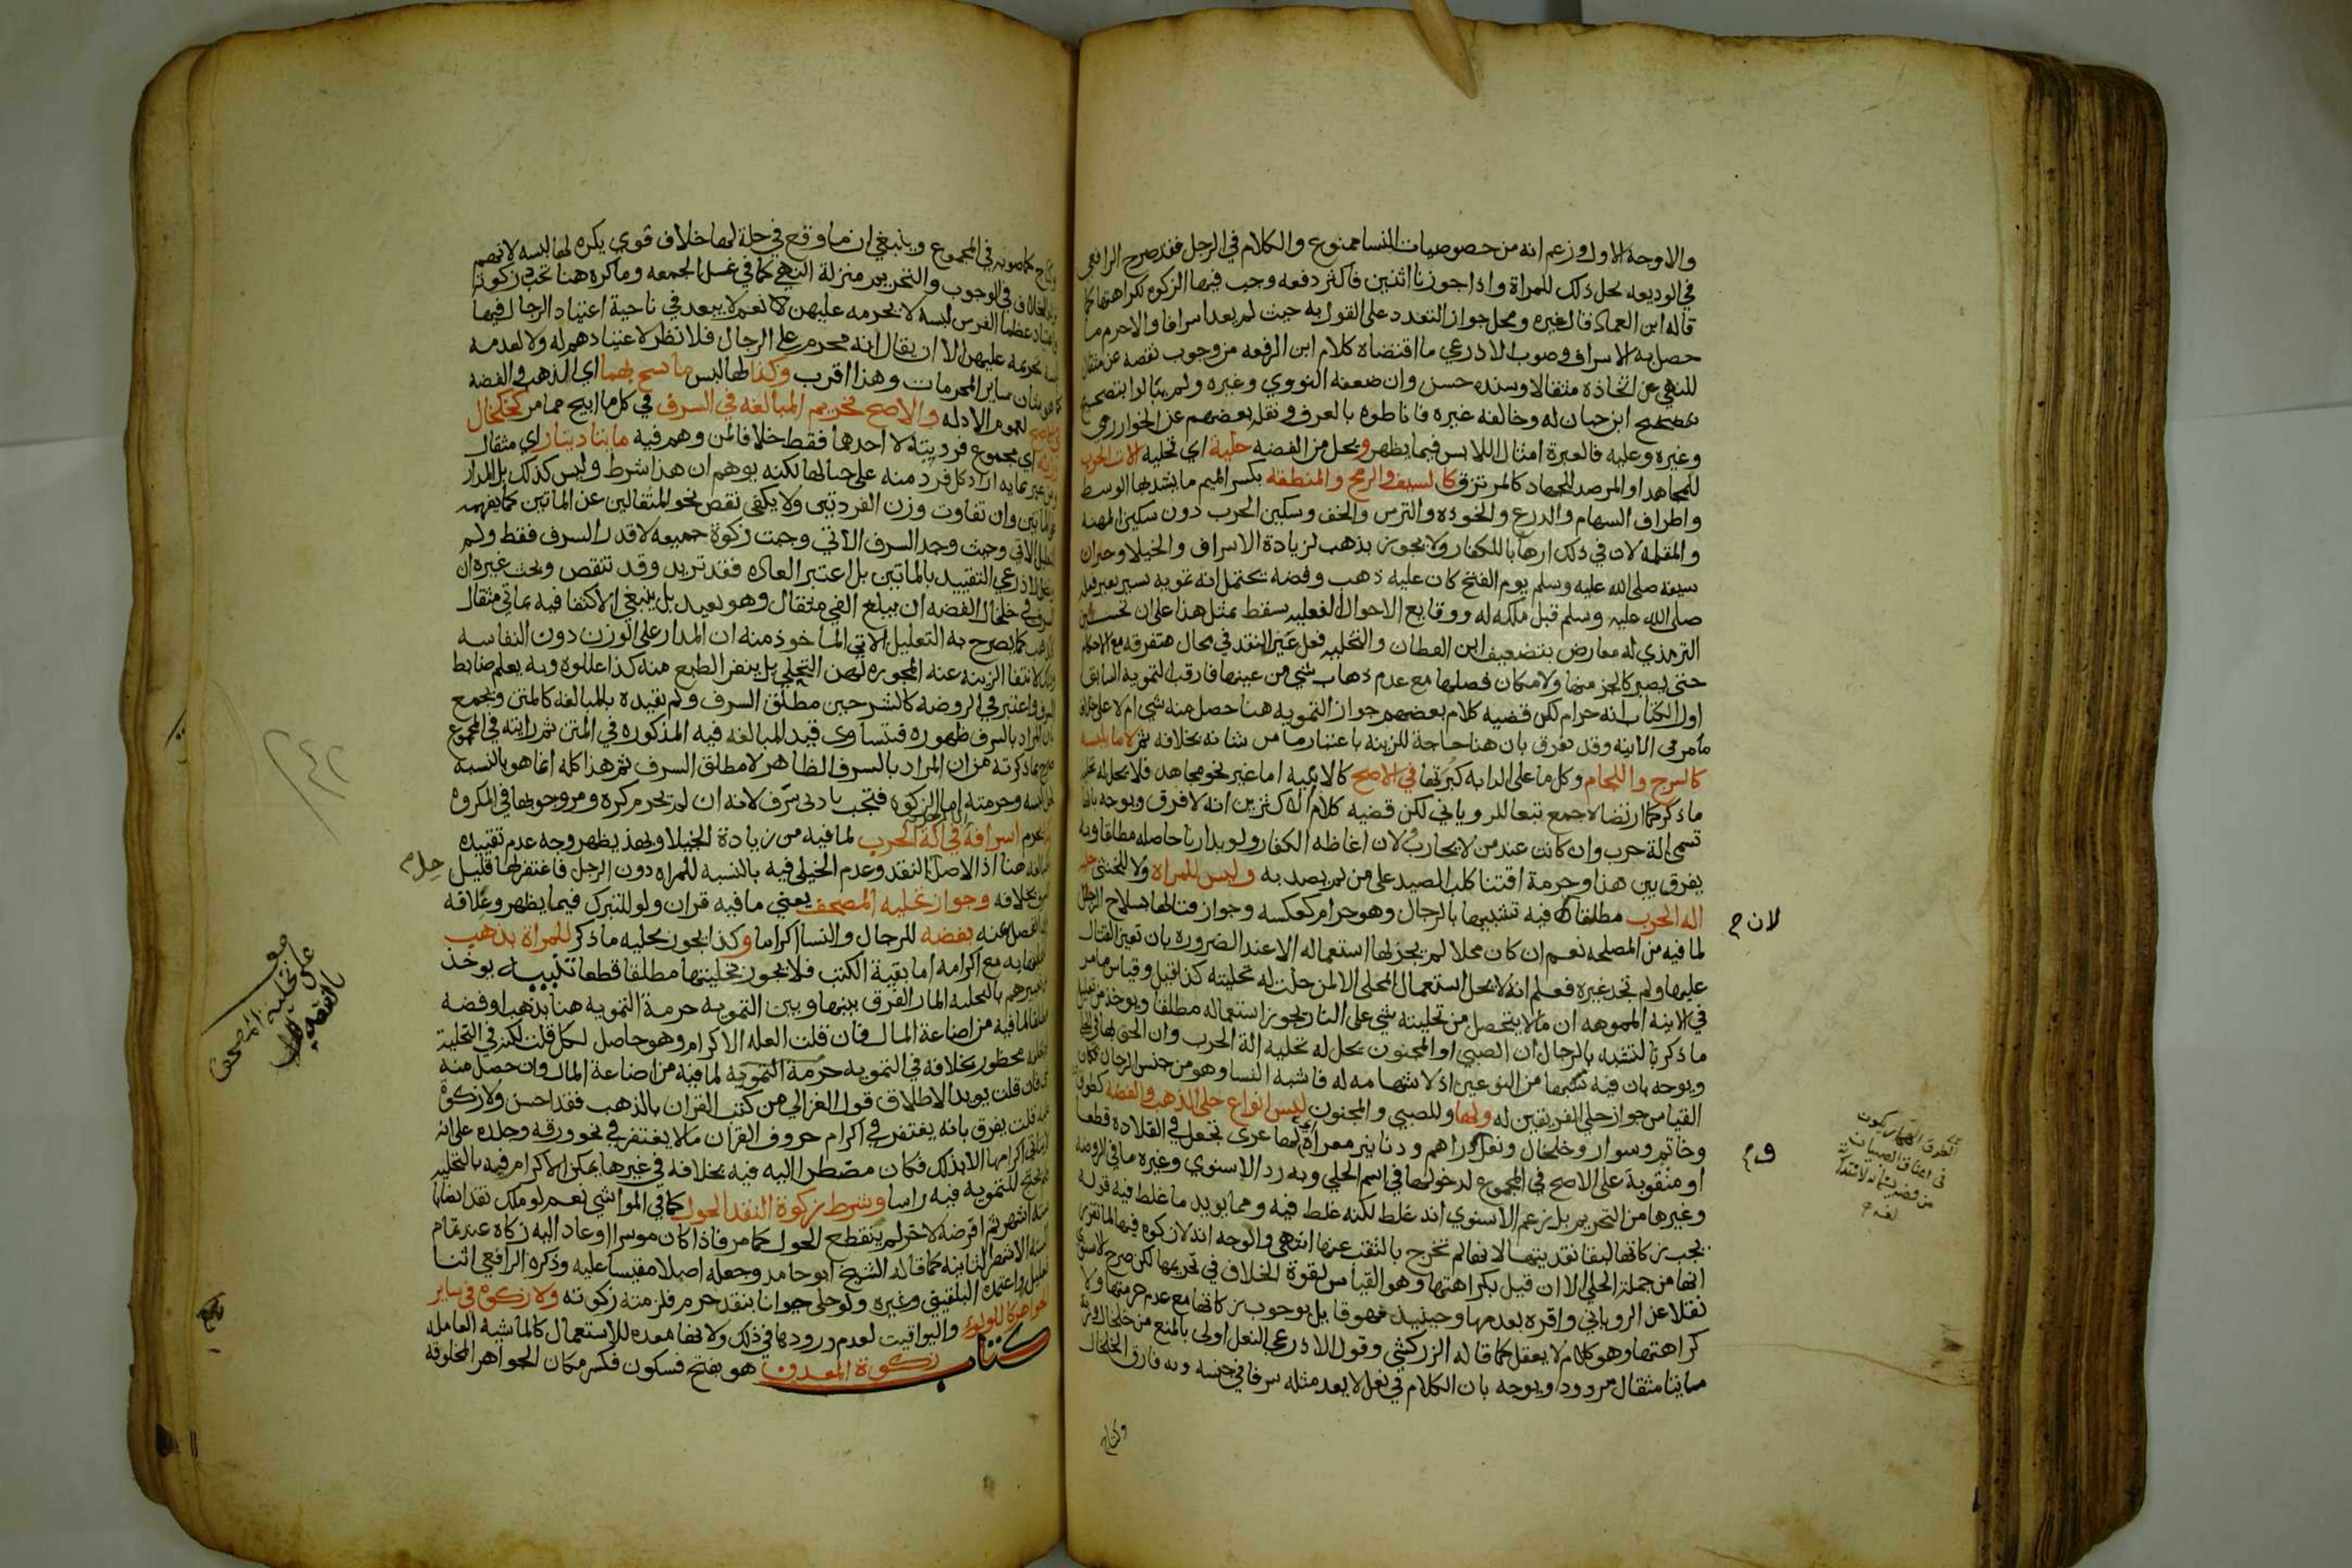 والاوجه الاول وزعم انه من خصوصيات النسا ممنوع والكلام في الرجل فقد صرح الرافعي
في الوديعه بحل ذلك للمراة واذا جوزنا اثنين فاكثر دفعه وجب فيها الزكوه لكراهتها كما
قاله ابن العماد قال غيره ومحل جواز التعدد على القول به حيث لم يعد اسرافا والا حرم ما
حصل به الاسراف وصوب الاذرعي ما اقتضاه كلام ابن الرفعه من وجوب نقصه عن مثقال
للنهي عن اتخاذه مثقالا وسنده حسن وان ضعفه النووي وغيره ولم يبالوا بتصحيح
ابن حبان له وخالفه غيره فاناطوه بالعرف ونقل بعضهم عن الخوارزمي
وغيره وعليه فالعبرة امثال اللابس فيما يظهر ويحل من الفضه حلية اي تحلية الات الحرب
للمجاهد او المرصد للجهاد كالمرتزق كالسيف والرمح والمنطقه بكسر الميم ما يشد بها الوسط
واطراف السهام والدرع والخوده والترس والخف وسكين الحرب دون سكين المهنه
والمقلمه لان في ذلك ارهابا للكفار ولا يجوز بذهب لزيادة الاسراف والخيلا وخبر ان
سيفه صلى الله عليه وسلم يوم الفتح كان عليه ذهب وفضه يحتمل انه تمويه يسير بغير فعله
صلى الله عليه وسلم قبل ملكه له ووقايع الاحوال الفعليه سقط بمثل هذا على ان تحسين
الترمذي له معارض بتضعيف ابن القطان والتحليه فعل عين النقد في محال متفرقه مع الاحكام
حتى يصير كالجز منها ولامكان فصلها مع عدم ذهاب شي من عينها فارقت التمويه السابق
اول الكتاب انه حرام لكن قضيه كلام بعضهم جواز التمويه هنا حصل منه شي ام لا على خلاف
مامر في الانيه وقد يفرق بان هنا حاجة للزينة باعتبار ما من شانه بخلافه ثم لا ما يلبسه
كالسرج واللجام وكل ما على الدابه كبرتها في الاصح كالانيه اما غير نحو مجاهد فلا يحل له تحليه
ما ذكر كما ارتضاه جمع تبعا للروياني لكن قضيه كلام الاكثرين انه لا فرق ويوجه بانها
تسمى الة حرب وان كانت عند من لا يحارب ولان اغاظه الكفار ولو بدارنا حاصله مطلقا وبه
يفرق بين هذا وحرمة اقتنا كلب الصيد على من لم يصد به وليس للمراه ولا للخنثى حليه
اله الحرب مطلقا لان فيه تشبيها بالرجال وهو حرام كعكسه وجواز قتالها بسلاح الرجال
لما فيه من المصلحه نعم ان كان محلا لم يجز لها استعماله الا عند الضروره بان تعين القتال
عليها ولم تجد غيره فعلم انه لا يحل استعمال المحلى الا لمن حلت له تحليته كذا قيل وقياس ما مر
في الانيه المموهه ان ما لا يتحصل من تحليته شي على النار يجوز استعماله مطلقا ويوخذ من تعليل
ما ذكر بالتشبه بالرجال ان الصبي او المجنون يحل له تحليه الة الحرب وان الحق بها في
ويوجه بان فيه شبها من النوعين اذ لا شهامه له فاشبه النسا وهو من جنس الرجال فكان
القياس جواز حلي الفريقين له ولها وللصبي والمجنون لبس انواع حلي الذهب والفضه كطوق
وخاتم وسوار وخلخال ونعل ودراهم ودنانير معراة اي لها عرى تجعل في القلاده قطعا
او مثقوبة على الاصح في المجموع لدخولها في اسم الحلي وبه رد الاسنوي وغيره ما في الروضه
وغيرها من التحريم بل زعم الاسنوي انه غلط لكنه غلط فيه ومما يويد ما غلط فيه قوله
يجب زكاتها لبقا نقديتها لانها لم تخرج بالثقب عنها انتهى والوجه انه لا زكوه فيها لما تقرر
انها من جملة الحلي الا ان قيل بكراهتها وهو القياس لقوة الخلاف في تحريمها لكن صرح الاسنوي
نقلا عن الروياني واقره بعدمها وحينيذ فهو قايل بوجوب زكاتها مع عدم حرمتها ولا
كراهتها وهو كلام لا يعقل كما قاله الزركشي وقول الاذرعي النعل اولى بالمنع من خلخال وزنه
مايتا مثقال مردود ويوجه بان الكلام في نعل لا يعد مثله سرفا في جنسه وبه فارق الخلخال
لان ح
كما صوبه في المجموع وينبغي ان ما وقع في حلة لها خلاف قوي يكره لها لبسه لانهم
الخلاف في الوجوب والتحريم منزلة النهي كما في غسل الجمعه وما كره هنا تجب زكوته
عظما الفرس لبسه لا يحرمه عليهن لا نعم لا يبعد في ناحية اعتياد الرجال فيها
تحريمه عليهن الا ان يقال انه محرم على الرجال فلا نظر لاعتيادهم له ولا لعدمه
سائر المحرمات وهذا اقرب وكذا لها لبس ما نسج بهما اي الذهب والفضه
لعموم الادله والاصح تحريم المبالغه في السرف في كل ما ابيح مما مر كخلخال
اي مجموع فردتيه لا احدها فقط خلافا لمن وهم فيه مايتا دينار اي مثقال
اراد كل فرد منه على حيالها لكنه يوهم ان هذا شرط وليس كذلك بل المدار
وان تفاوت وزن الفردتين ولا يكفي نقص نحو المثقالين عن الماتين كما يفهمه
الاتي وحيث وجد السرف الاتي وجبت زكوة جميعه لا قدر السرف فقط ولم
الاذرعي التقييد بالماتين بل اعتبر العاده فقد تزيد وقد تنقص وبحث غيره ان
في خلخال الفضه ان يبلغ الفي مثقال وهو بعيد بل ينبغي الاكتفا فيه بماتي مثقال
كما يصرح به التعليل الاتي الماخوذ منه ان المدار على الوزن دون النفاسه
لانتفا الزينه عنه المجوزه لهن التحلي بل ينفر الطبع منه كذا عللوه وبه يعلم ضابط
واعتبر في الروضه كالشرحين مطلق السرف ولم يقيده بالمبالغه كالمتن ويجمع
بان المراد بالسرف ظهوره فيتساوى قيد المبالغه فيه المذكوره في المتن ثم رايته في المجموع
صرح بما ذكرته من ان المراد بالسرف الظاهر لا مطلق السرف ثم هذا كله انما هو بالنسبه
وحرمته اما الزكوه فتجب بادنى سرف لانه ان لم يحرم كره ومر وجوبها في المكروه
اسرافه في الة الحرب لما فيه من زيادة الخيلا وبهذا يظهر وجه عدم تقييده
هنا اذ الاصل النقد وعدم الخيلا فيه بالنسبه للمراه دون الرجل فاغتفر لها قليل
بخلافه وجواز تحليه المصحف يعني ما فيه قران ولو للتبرك فيما يظهر وغلافه
المنفصل عنه بفضه للرجال والنسا اكراما وكذا يجوز تحليه ما ذكر للمراة بذهب
مع اكرامه اما بقية الكتب فلا يجوز تحليتها مطلقا قطعا تنبيه يوخذ
من تعبيرهم بالتحليه المار الفرق بينها وبين التمويه حرمة التمويه هنا بذهب او فضه
مطلقا لما فيه من اضاعة المال فان قلت العله الاكرام وهو حاصل لكل قلت لكنه في التحلية
محظور بخلافه في التمويه حرمة التمويه لما فيه من اضاعة المال وان حصل منه
فان قلت يويد الاطلاق قول الغزالي من كتب القران بالذهب فقد احسن ولا زكوة
قلت يفرق بانه يغتفر في اكرام حروف القران ما لا يغتفر في نحو ورقه وجلده على انه
اكرامها الا بذلك فكان مضطرا اليه فيه بخلافه في غيرها يمكن الاكرام فيه بالتحليه
للتمويه فيه راسا وشرط زكوة النقد الحول كما في المواشي نعم لو ملك نقدا نصابا
ستة اشهر ثم اقرضه لاخر لم ينقطع الحول كما مر فاذا كان موسرا او عاد اليه زكاه عند تمام
الستة الاشهر الثانيه كما قاله الشيخ ابو حامد وجعله اصلا مقيسا عليه وذكره الرافعي اثنا
تعليل واعتمده البلقيني وغيره ولو حلى حيوانا بنقد حرم فلزمته زكوته ولا زكوه في ساير
الجواهر كاللولو واليواقيت لعدم ورودها في ذلك ولانها معده للاستعمال كالماشية العامله
كتاب زكوة المعدن هو بفتح فسكون فكسر مكان الجواهر المخلوقه
على تحلية المصحف